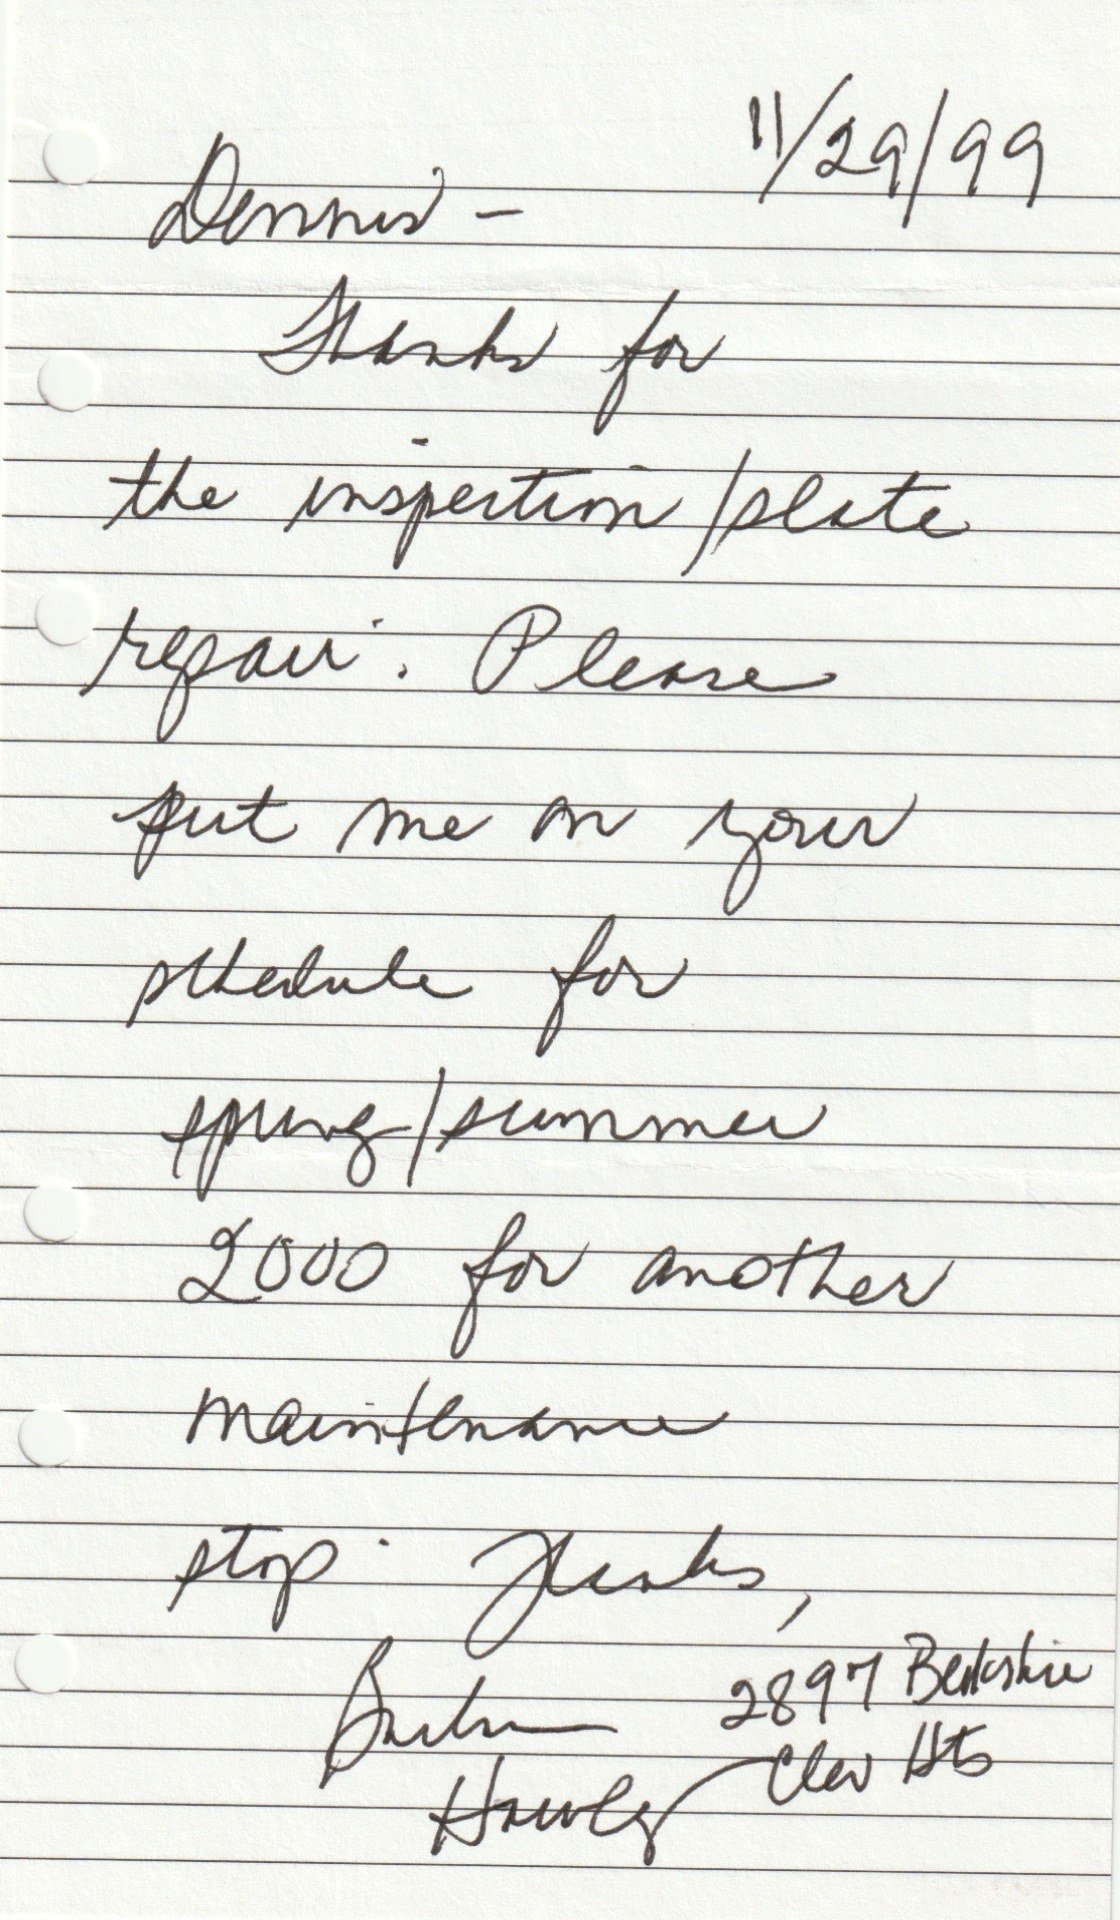 11/29/99
Dennis –
Thanks for
the inspection/slate
repair. Please
put me on your
schedule for
spring/summer
2000 for another
maintenance
stop. Thanks,
Barbara 2897 Berkshire
Hawley Clev Hts